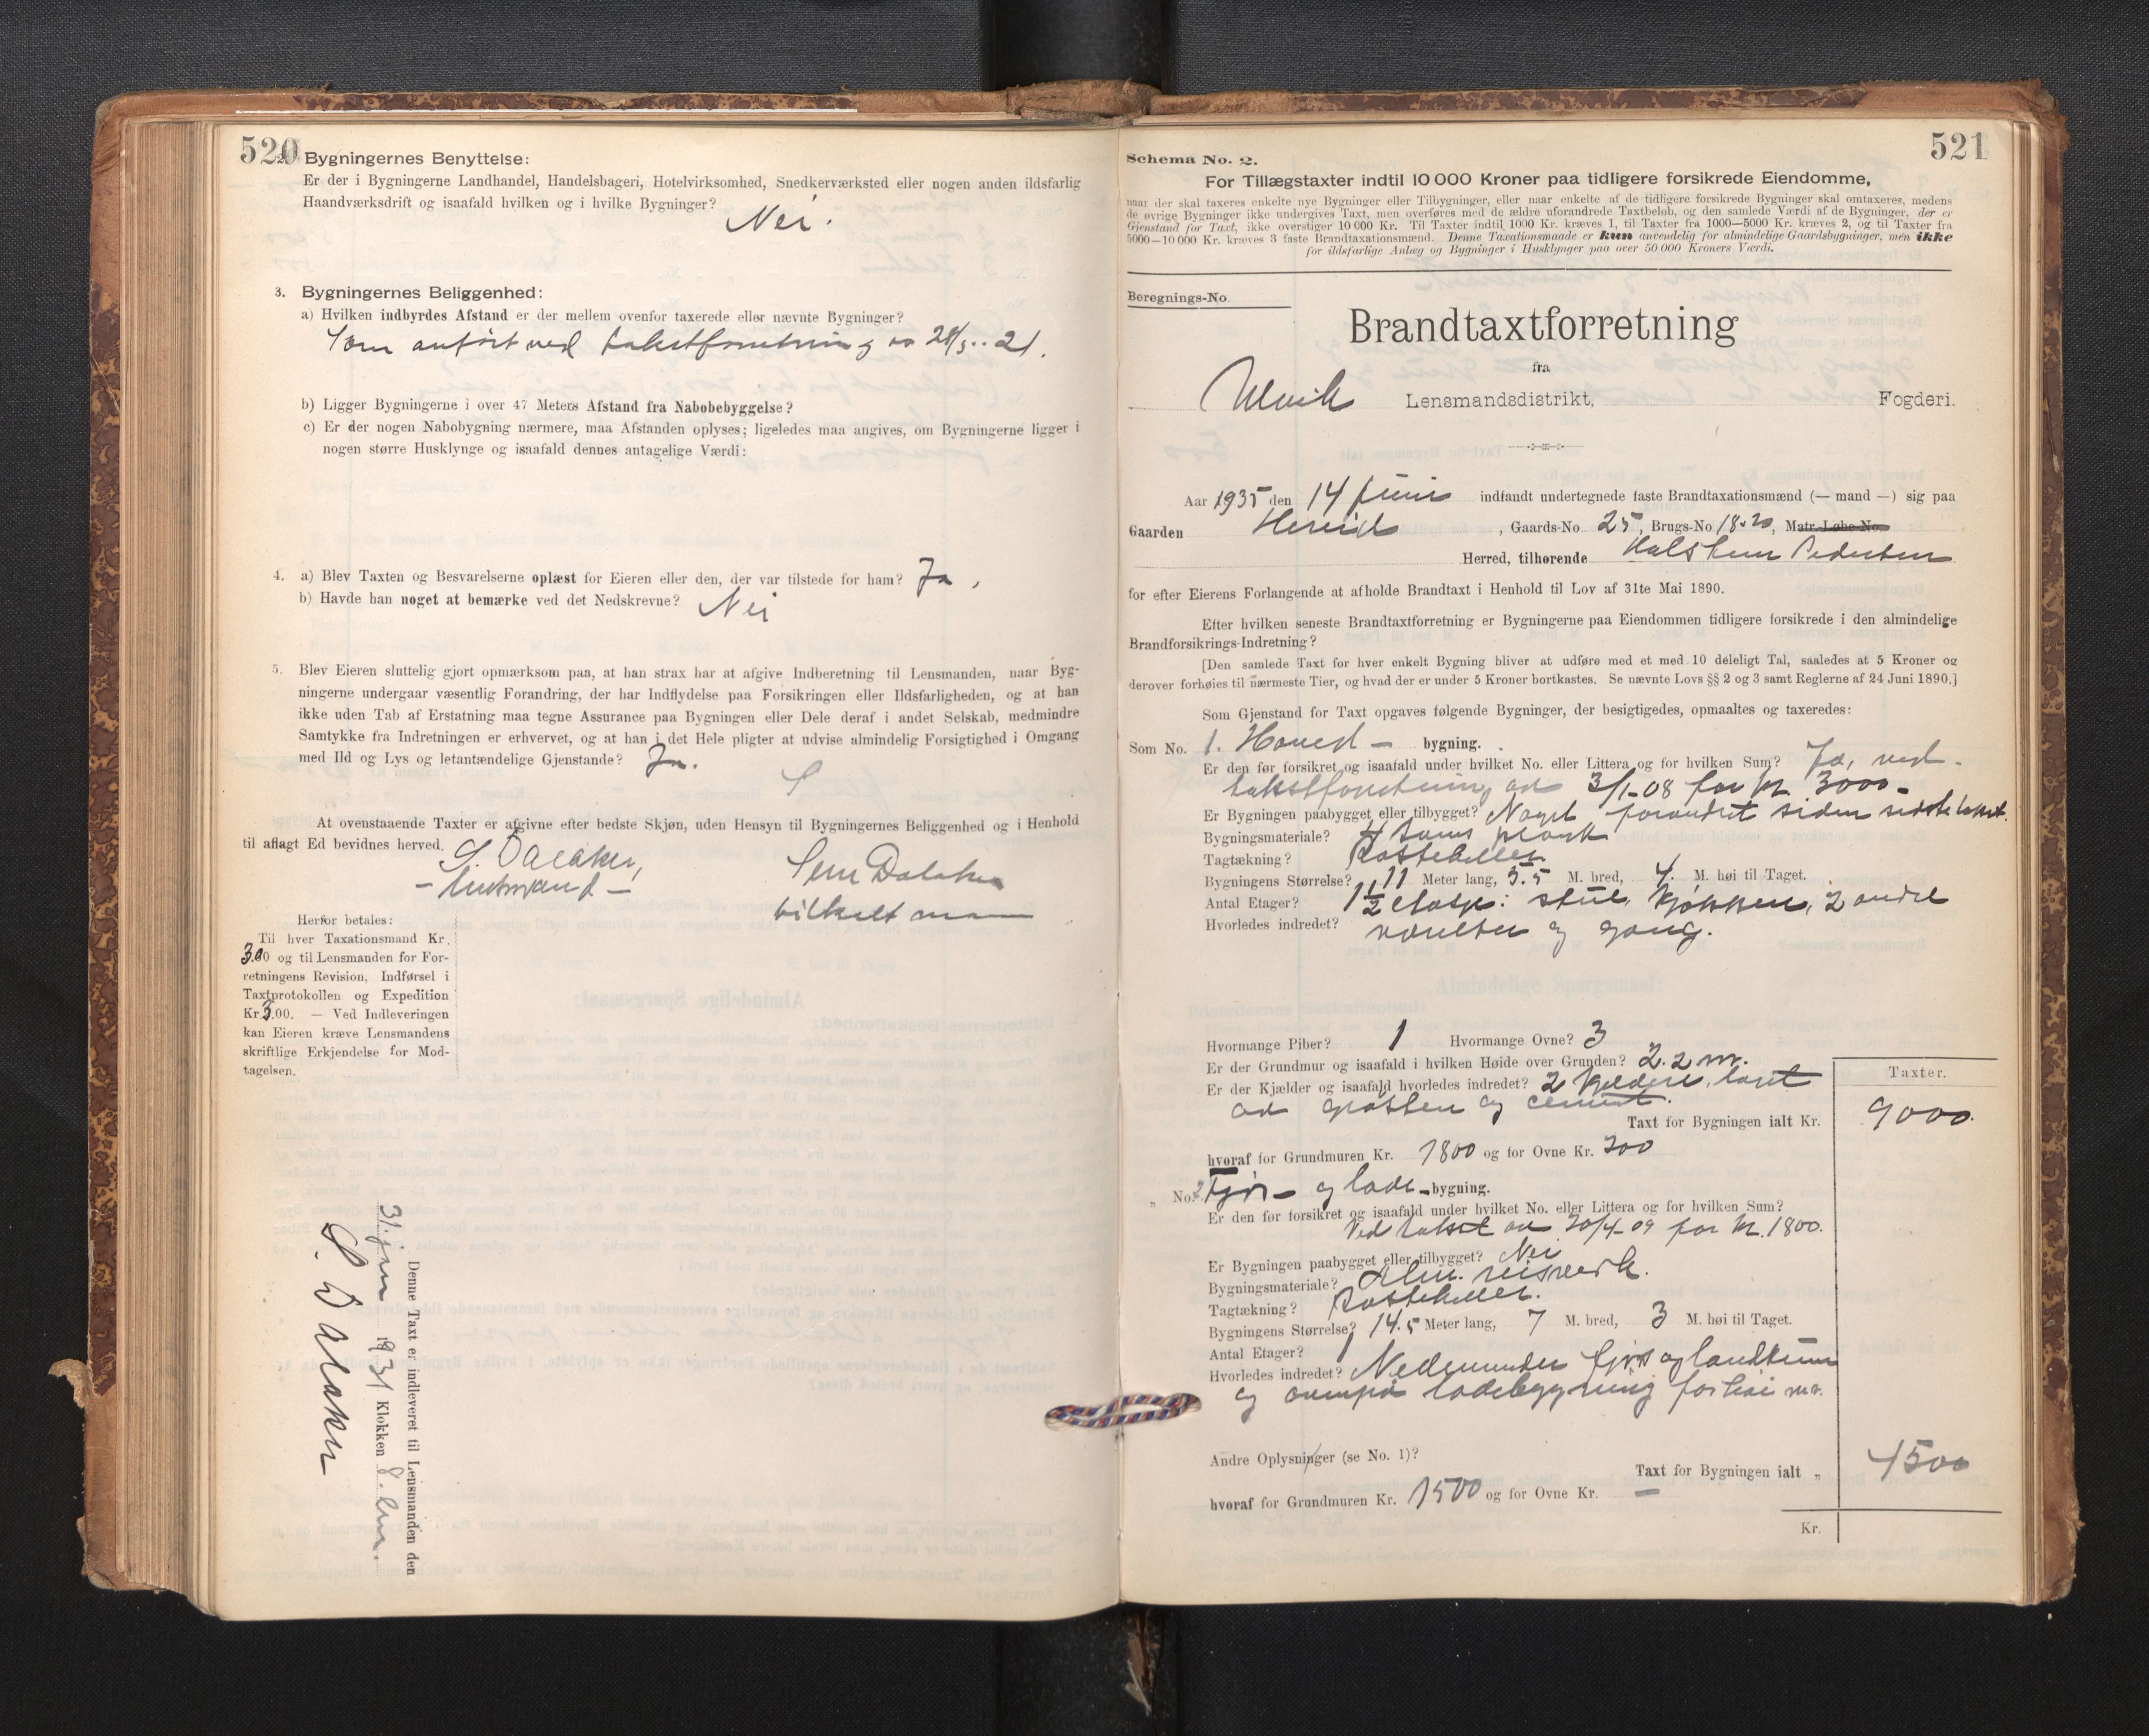 520
2. Bygningernes Benyttelse:
Er der i Bygningerne Landhandel, Handelsbageri, Hotelvirksomhed, Snedkerværksted eller nogen anden ildsfarlig
Haandværksdrift og isaafald hvilken og i hvilke Bygninger?
Nei.
3. Bygningernes Beliggenhed:
a) Hvilken indbyrdes Afstand er der mellem ovenfor taxerede eller nævnte Bygninger?
Som anført ved takstforretning av 28/5.. 21.
b) Ligger Bygningerne i over 47 Meters Afstand fra Nabobebyggelse?
c) Er der nogen Nabobygning nærmere, maa Afstanden oplyses; ligeledes maa angives, om Bygningerne ligger i
nogen større Husklynge og isaafald dennes antagelige Værdi:
4. a) Blev Taxten og Besvarelserne oplæst for Eieren eller den, der var tilstede for ham? Ja,
b) Havde han noget at bemærke ved det Nedskrevne? Nei
5. Blev Eieren sluttelig gjort opmærksom paa, at han strax har at afgive Indberetning til Lensmanden, naar Byg-
ningerne undergaar væsentlig Forandring, der har Indflydelse paa Forsikringen eller Ildsfarligheden, og at han
ikke uden Tab af Erstatning maa tegne Assurance paa Bygningen eller Dele deraf i andet Selskab, medmindre
Samtykke fra Indretningen er erhvervet, og at han i det Hele pligter at udvise almindelig Forsigtighed i Omgang
med Ild og Lys og letantændelige Gjenstande? Ja.
At ovenstaaende Taxter er afgivne efter bedste Skjøn, uden Hensyn til Bygningernes Beliggenhed og i Henhold
til aflagt Ed bevidnes herved.
S. Dalaker, Dalaker
tilkalt
Herfor betales:
Til hver Taxationsmand Kr.
3.00 og til Lensmanden for For-
retningens Revision, Indførsel i
Taxtprotokollen og Expedition
Kr. 3.00. — Ved Indleveringen
kan Eieren kræve Lensmandens
skriftlige Erkjendelse for Mod-
tagelsen.
Denne Taxt er indleveret til Lensmanden den
31. 1931 Klokken 8.
S. Dalaker
521
Schema No. 2.
For Tillægstaxter indtil 10 000 Kroner paa tidligere forsikrede Eiendomme,
naar der skal taxeres enkelte nye Bygninger eller Tilbygninger, eller naar enkelte af de tidligere forsikrede Bygninger skal omtaxeres, medens
de øvrige Bygninger ikke undergives Taxt, men overføres med de ældre uforandrede Taxtbeløb, og den samlede Værdi af de Bygninger, der er
Gjenstand for Taxt, ikke overstiger 10 000 Kr. Til Taxter indtil 1000 Kr. kræves 1, til Taxter fra 1000—5000 Kr. kræves 2, og til Taxter fra
5000—10 000 Kr. kræves 3 faste Brandtaxationsmænd. Denne Taxationsmaade er kun anvendelig for almindelige Gaardsbygninger, men ikke
for ildsfarlige Anlæg og Bygninger i Husklynger paa over 50 000 Kroners Værdi.
Beregnings-No.
Brandtaxtforretning
fra
Ulvik Lensmandsdistrikt, Fogderi.
Aar 1935 den 14 juni indfandt undertegnede faste Brandtaxationsmænd (— mand —) sig paa
Gaarden Hereid, Gaards-No 25, Brugs-No 18.20, Matr.-Løbe-No.
Herred, tilhørende Pedersen
for efter Eierens Forlangende at afholde Brandtaxt i Henhold til Lov af 31te Mai 1890.
Efter hvilken seneste Brandtaxtforretning er Bygningerne paa Eiendommen tidligere forsikrede i den almindelige
Brandforsikrings-Indretning?
[Den samlede Taxt for hver enkelt Bygning bliver at udføre med et med 10 deleligt Tal, saaledes at 5 Kroner og
derover forhøies til nærmeste Tier, og hvad der er under 5 Kroner bortkastes. Se nævnte Lovs §§ 2 og 3 samt Reglerne af 24 Juni 1890.]
Som Gjenstand for Taxt opgaves følgende Bygninger, der besigtigedes, opmaaltes og taxeredes:
Som No. 1. Hoved — bygning.
Er den før forsikret og isaafald under hvilket No. eller Littera og for hvilken Sum? Ja, ved
takstforretning av 3/1-08 for kr. 3000-
Er Bygningen paabygget eller tilbygget? Noget forandret siden sidste takst.
Bygningsmateriale? 4 toms plank
Tagtækning? Rasteheller.
Bygningens Størrelse? 11 Meter lang, 5.5 M. bred, 4. M. høi til Taget.
Antal Etager? 1 1/2 etasje: stue, kjøkken, 2 andre
Hvorledes indredet? værelser og gang.
Hvormange Piber? 1 Hvormange Ovne? 3
Er der Grundmur og isaafald i hvilken Høide over Grunden? 2.2 m.
Er der Kjælder og isaafald hvorledes indredet? 2 kjeldere,
av graasten og cement.
Taxter.
Taxt for Bygningen ialt Kr. 9000.
hvoraf for Grundmuren Kr. 1800 og for Ovne Kr. 300
„ No. 2 Fjøs- og lade-bygning.
Er den før forsikret og isaafald under hvilket No. eller Littera og for hvilken Sum?
Ved takst av 30/4-09 for kr. 1800.
Er Bygningen paabygget eller tilbygget? Nei
Bygningsmateriale? Alm. reisverk.
Tagtækning? Rasteheller.
Bygningens Størrelse? 14.5 Meter lang, 7 M. bred, 3 M. høi til Taget.
Antal Etager? 1
Hvorledes indredet? Nedenunder fjøs og
og ovenpå ladebygning for høi m.v.
Andre Oplysninger (se No. 1)?
Taxt for Bygningen ialt „ 4500
hvoraf for Grundmuren Kr. 1500 og for Ovne Kr. —
Kr.